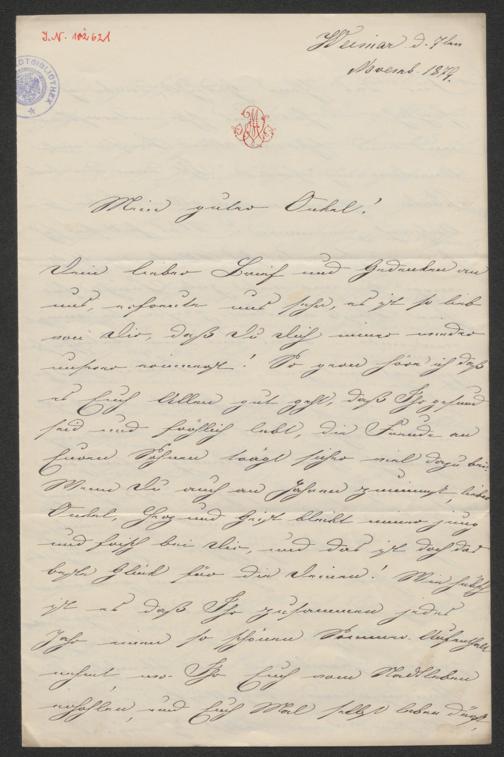 J.N. 102621
Weimar d. 7ten
Novemb. 1879.
Mein guter Onkel!
Dein lieber Brief und Gedenken an
uns, erfreute uns sehr, es ist so lieb
von Dir, daß Du Dich immer wieder
unserer erinnerst! So gern höre ich daß
es Euch Allen gut geht, daß Ihr gesund
seid und fröhlich lebt, die Freude an
Euren Söhnen trägt sicher viel dazu bei.
Wenn Du auch an Jahren zunimmst, lieber
Onkel, Herz und Geist bleibt immer jung
und frisch bei Dir, und das ist doch das
beste Glück für die Deinen! Wie hübsch
ist es daß Ihr zusammen jedes
Jahr einen so schönen Sommer-Aufenthalt
nehmt wo Ihr Euch vom Stadtleben
erhohlen, und Euch Mal selbst leben dürft,